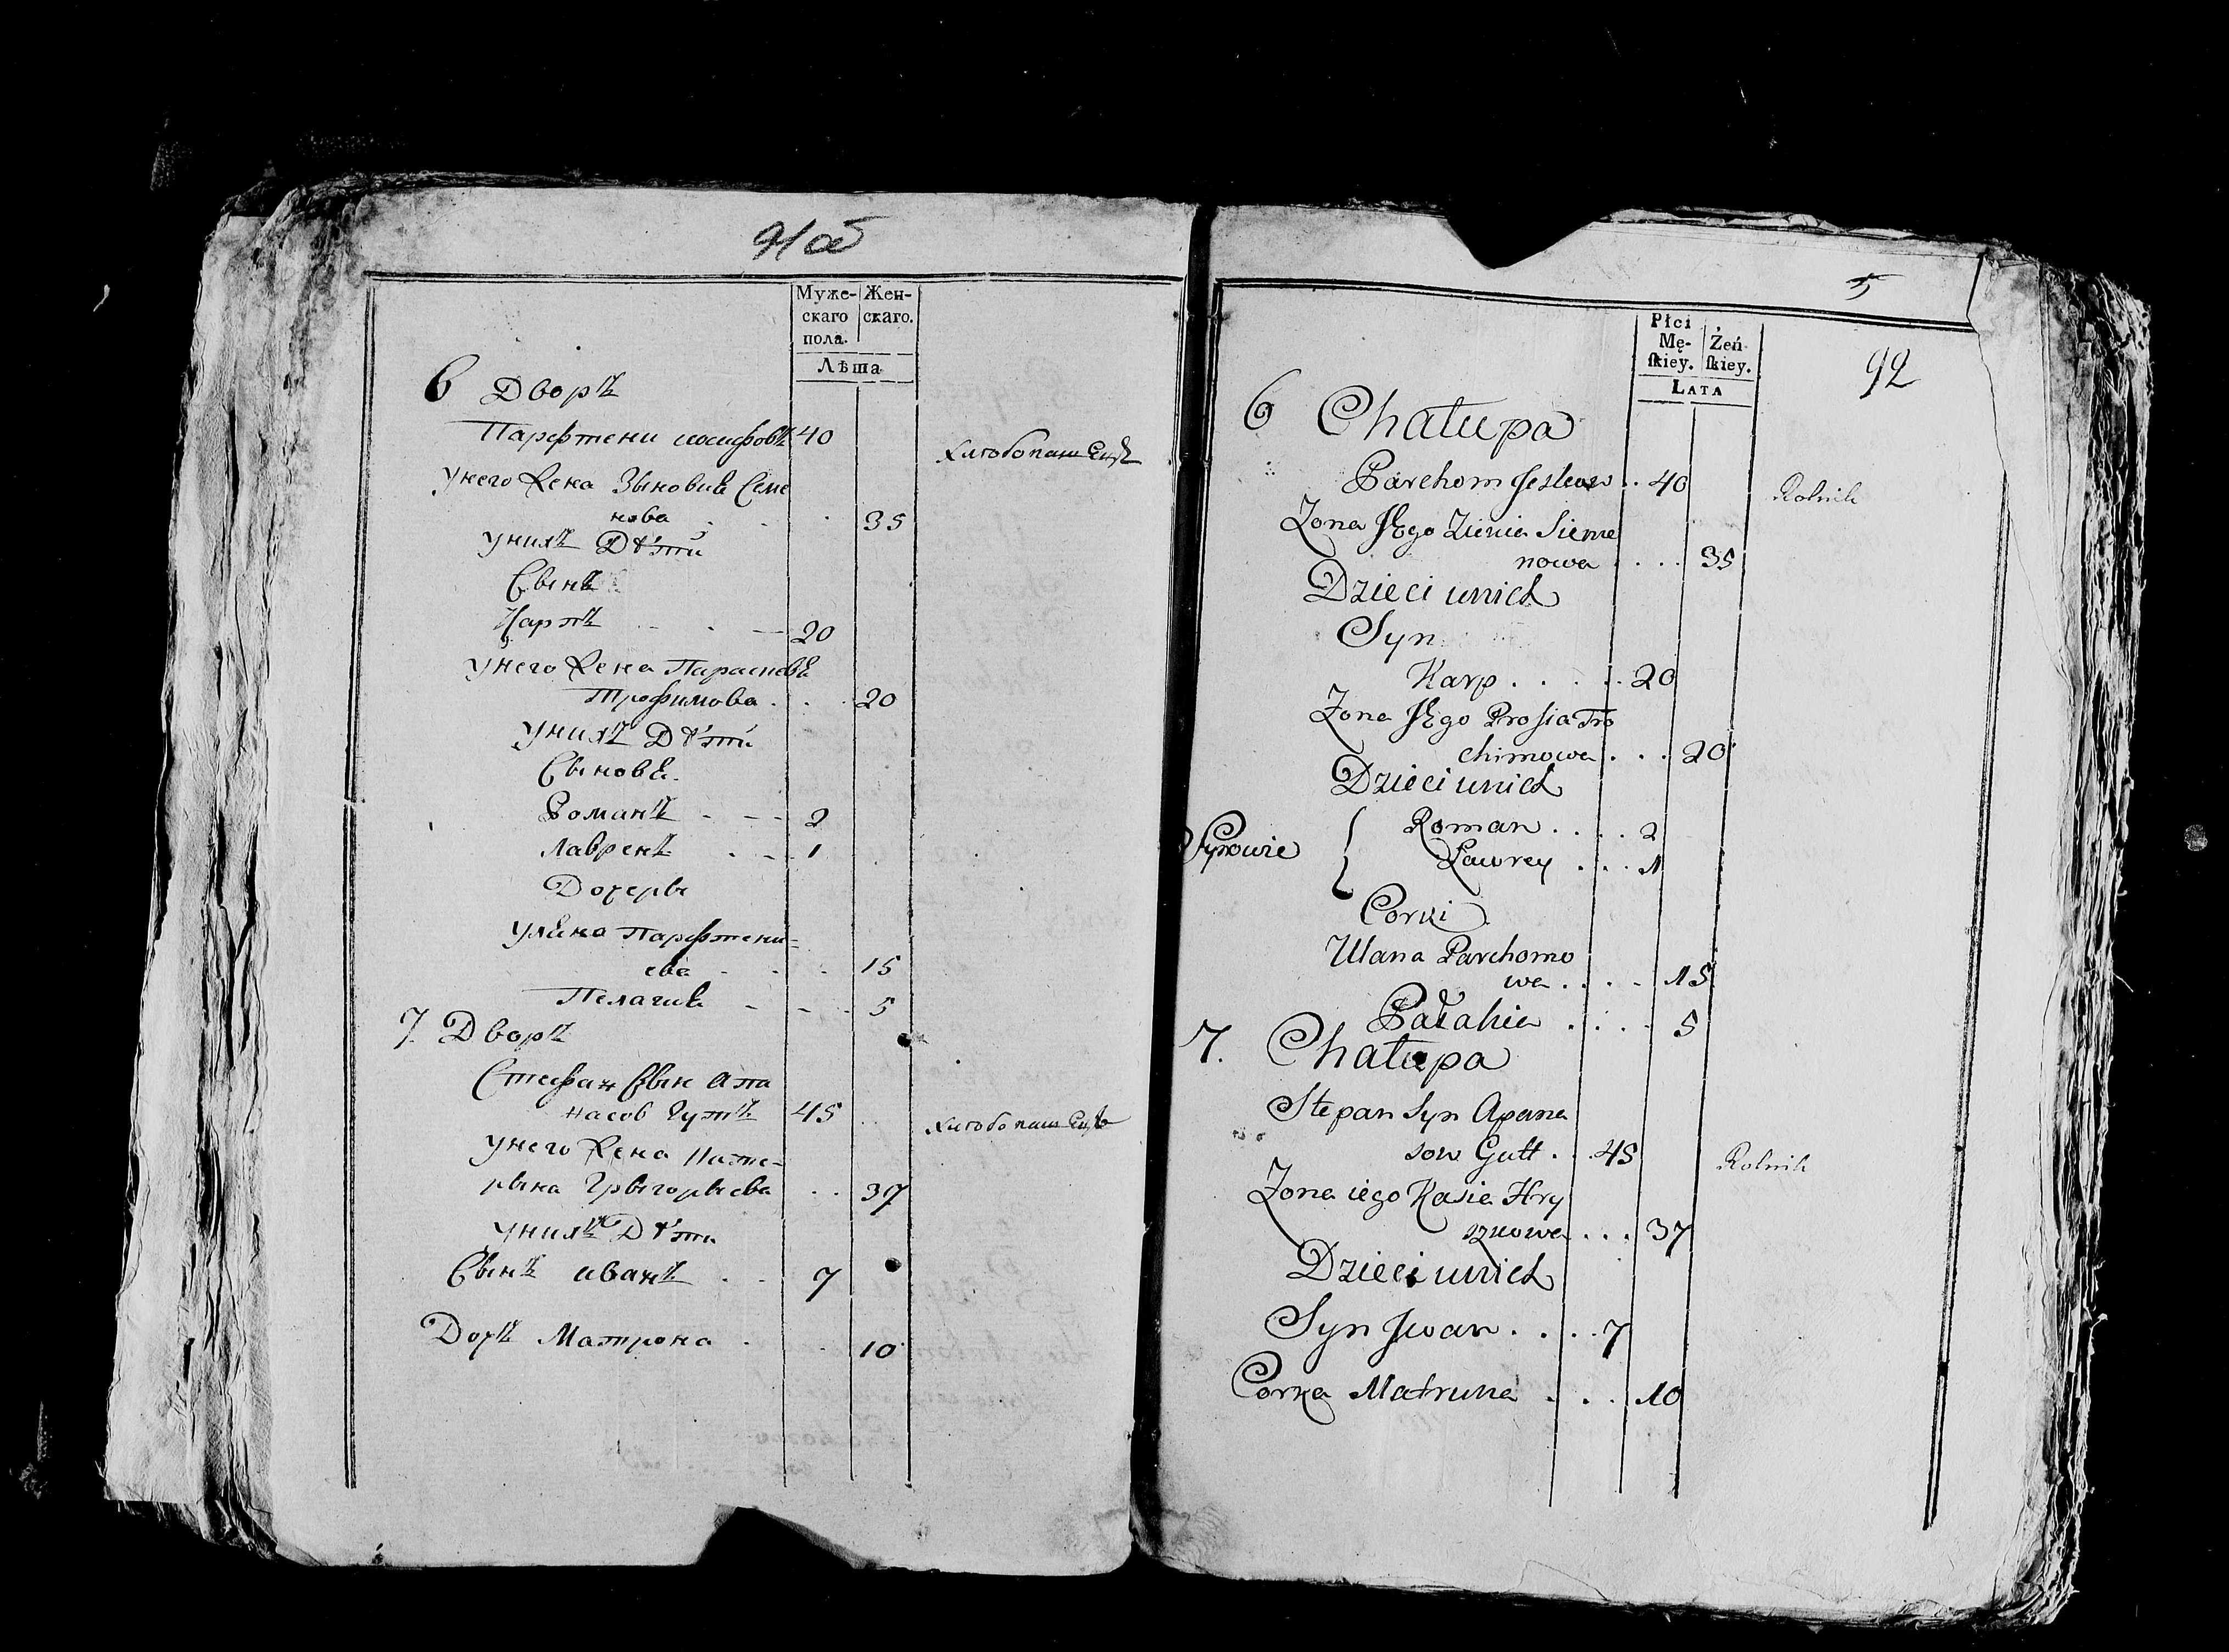 Муже-
скаго
пола.
Жен-
скаго.
Лѣта
6 Дворъ
Парфтени иосифовъ 40
хлѣбопашецъ
Унего жена Зыновия Семе
нова . . . 35
Унихъ Дѣти
Сынъ
Карпъ - . - 20
Унего жена Парасковя
Трофимова . . . 20
Унихъ Дѣти
Сыновя.
Романъ - - - 2
Лаврен - - 1
Дочеры
Уляна Парфтени=
ева - - - 15
Пелагия - - - 5
7. Дворъ
Стефан Сын Апа
насов Гутъ 45
хлѣбопашецъ
Унего жена Кате-
рына Грыгорыева . . 37
Унихъ Дѣти
Сынъ иванъ . - 7
Дочъ Матрона . . 10
5
Płci
Mę-
skiey.
Żeń
skiey.
LATA
92
6 Chałupa
Parchom . . 40
Rolnik
Zona JEgo Zienia Sieme
nowa . . . . 35
Dzieci unich
Syn
Karp . . . . . 20
Zona JEgo Prosia Tro
chimowa . . . 20
Dzieci unich
Synowie { Roman . . . . 2
Ławrey . . . . 1
Corki
Ulana Parchomo
wa . . . - 15
Pałahia . . . - 5
7. Chałupa
Stepan Syn Apana
sow Gutt . . 45
Rolnik
Zona iego Kasia Hry
szkowa . . . 37
Dzieci unich
Syn Jwan . . . . 7
Corka Matruna . . . 10